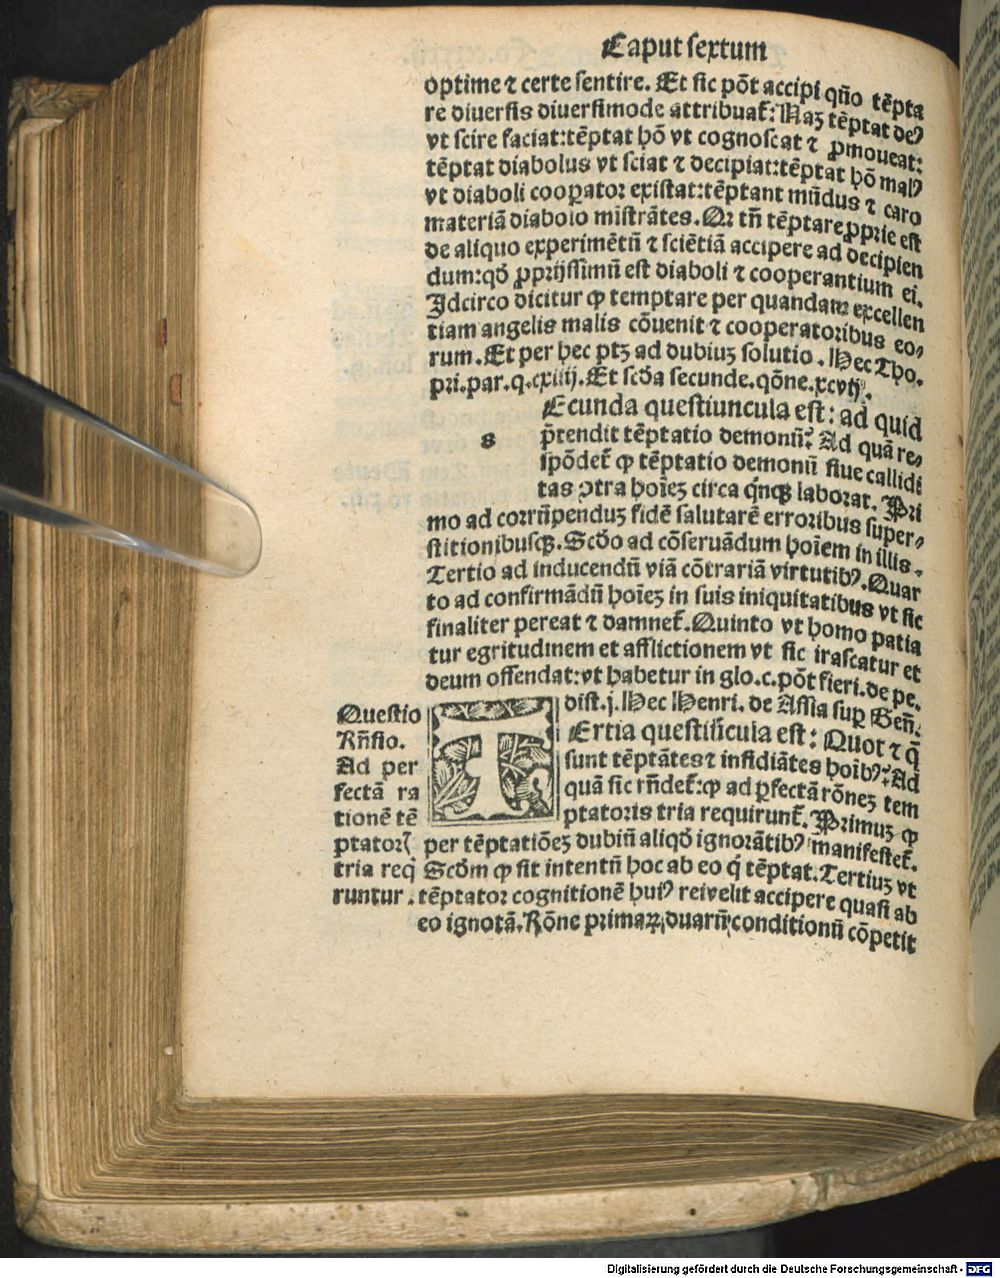 Caput sextum
optime ⁊ certe sentire. Et sic põt accipi qño tẽpta
re diuersis diuersimode attribuat᷑: Naʒ tẽptat deꝰ
vt scire faciat: tẽptat hõ vt cognoscat ⁊ ꝓmoueat:
tẽptat diabolus vt sciat ⁊ decipiat: tẽptat hõ malꝰ
vt diaboli cooꝑator existat: tẽptant mũdus ⁊ caro
materiã diabolo mĩstrãtes. Qꝛ tñ tẽptare ꝓprie est
de aliquo experimẽtũ ⁊ sciẽtiã accipere ad decipien
dum: qđ ꝓprijssimũ est diaboli ⁊ cooperantium ei.
Idcirco dicitur ꝙ temptare per quandam excellen
tiam angelis malis cõuenit ⁊ cooperatoribus eo⸗
rum. Et per hec ptʒ ad dubiuʒ solutio. Hec Tho.
pri. par. q. cxiiij. Et scđa secunde. qõne. xcvij.
Ecunda questiuncula est: ad quid
s
p̃tendit tẽptatio demonũ? Ad quã re⸗
spõdet᷑ ꝙ tẽptatio demonũ siue callidi
tas ꝯtra hoĩeʒ circa qͥnqꝫ laborat. Pri
mo ad corrũpenduʒ fidẽ salutarẽ erroribus super⸗
stitionibusqꝫ. Scđo ad cõseruãdum hoĩem in illis.
Tertio ad inducendũ viã cõtrariã virtutibꝰ. Quar
to ad confirmãdũ hoĩeʒ in suis iniquitatibus vt sic
finaliter pereat ⁊ damnet᷑. Quinto vt homo patia
tur egritudinem et afflictionem vt sic irascatur et
deum offendat: vt habetur in glo. c. põt fieri. de pe.
dist. j. Hec Henri. de Assia suꝑ Geñ.
Questio
Rñsio.
Ad per
fectã ra
tionẽ tẽ
ptatorꝭ
tria reqͥ
runtur.
T
Ertia questiũcula est: Quot ⁊ q̃
sunt tẽptãtes ⁊ insidiãtes hoĩbꝰ? Ad
quã sic rñdet᷑: ꝙ ad ꝑfectã rõneʒ tem
ptatoris tria requirunt᷑. Primuʒ ꝙ
per tẽptatiõeʒ dubiũ aliqđ ignorãtibꝰ manifestet᷑.
Scđm ꝙ sit intentũ hoc ab eo qͥ tẽptat. Tertiuʒ vt
tẽptator cognitionẽ huiꝰ rei velit accipere quasi ab
eo ignotã. Rõne primaꝝ duarũ conditionũ cõpetit
Digitalisierung gefördert durch die Deutsche Forschungsgemeinschaft - DFG